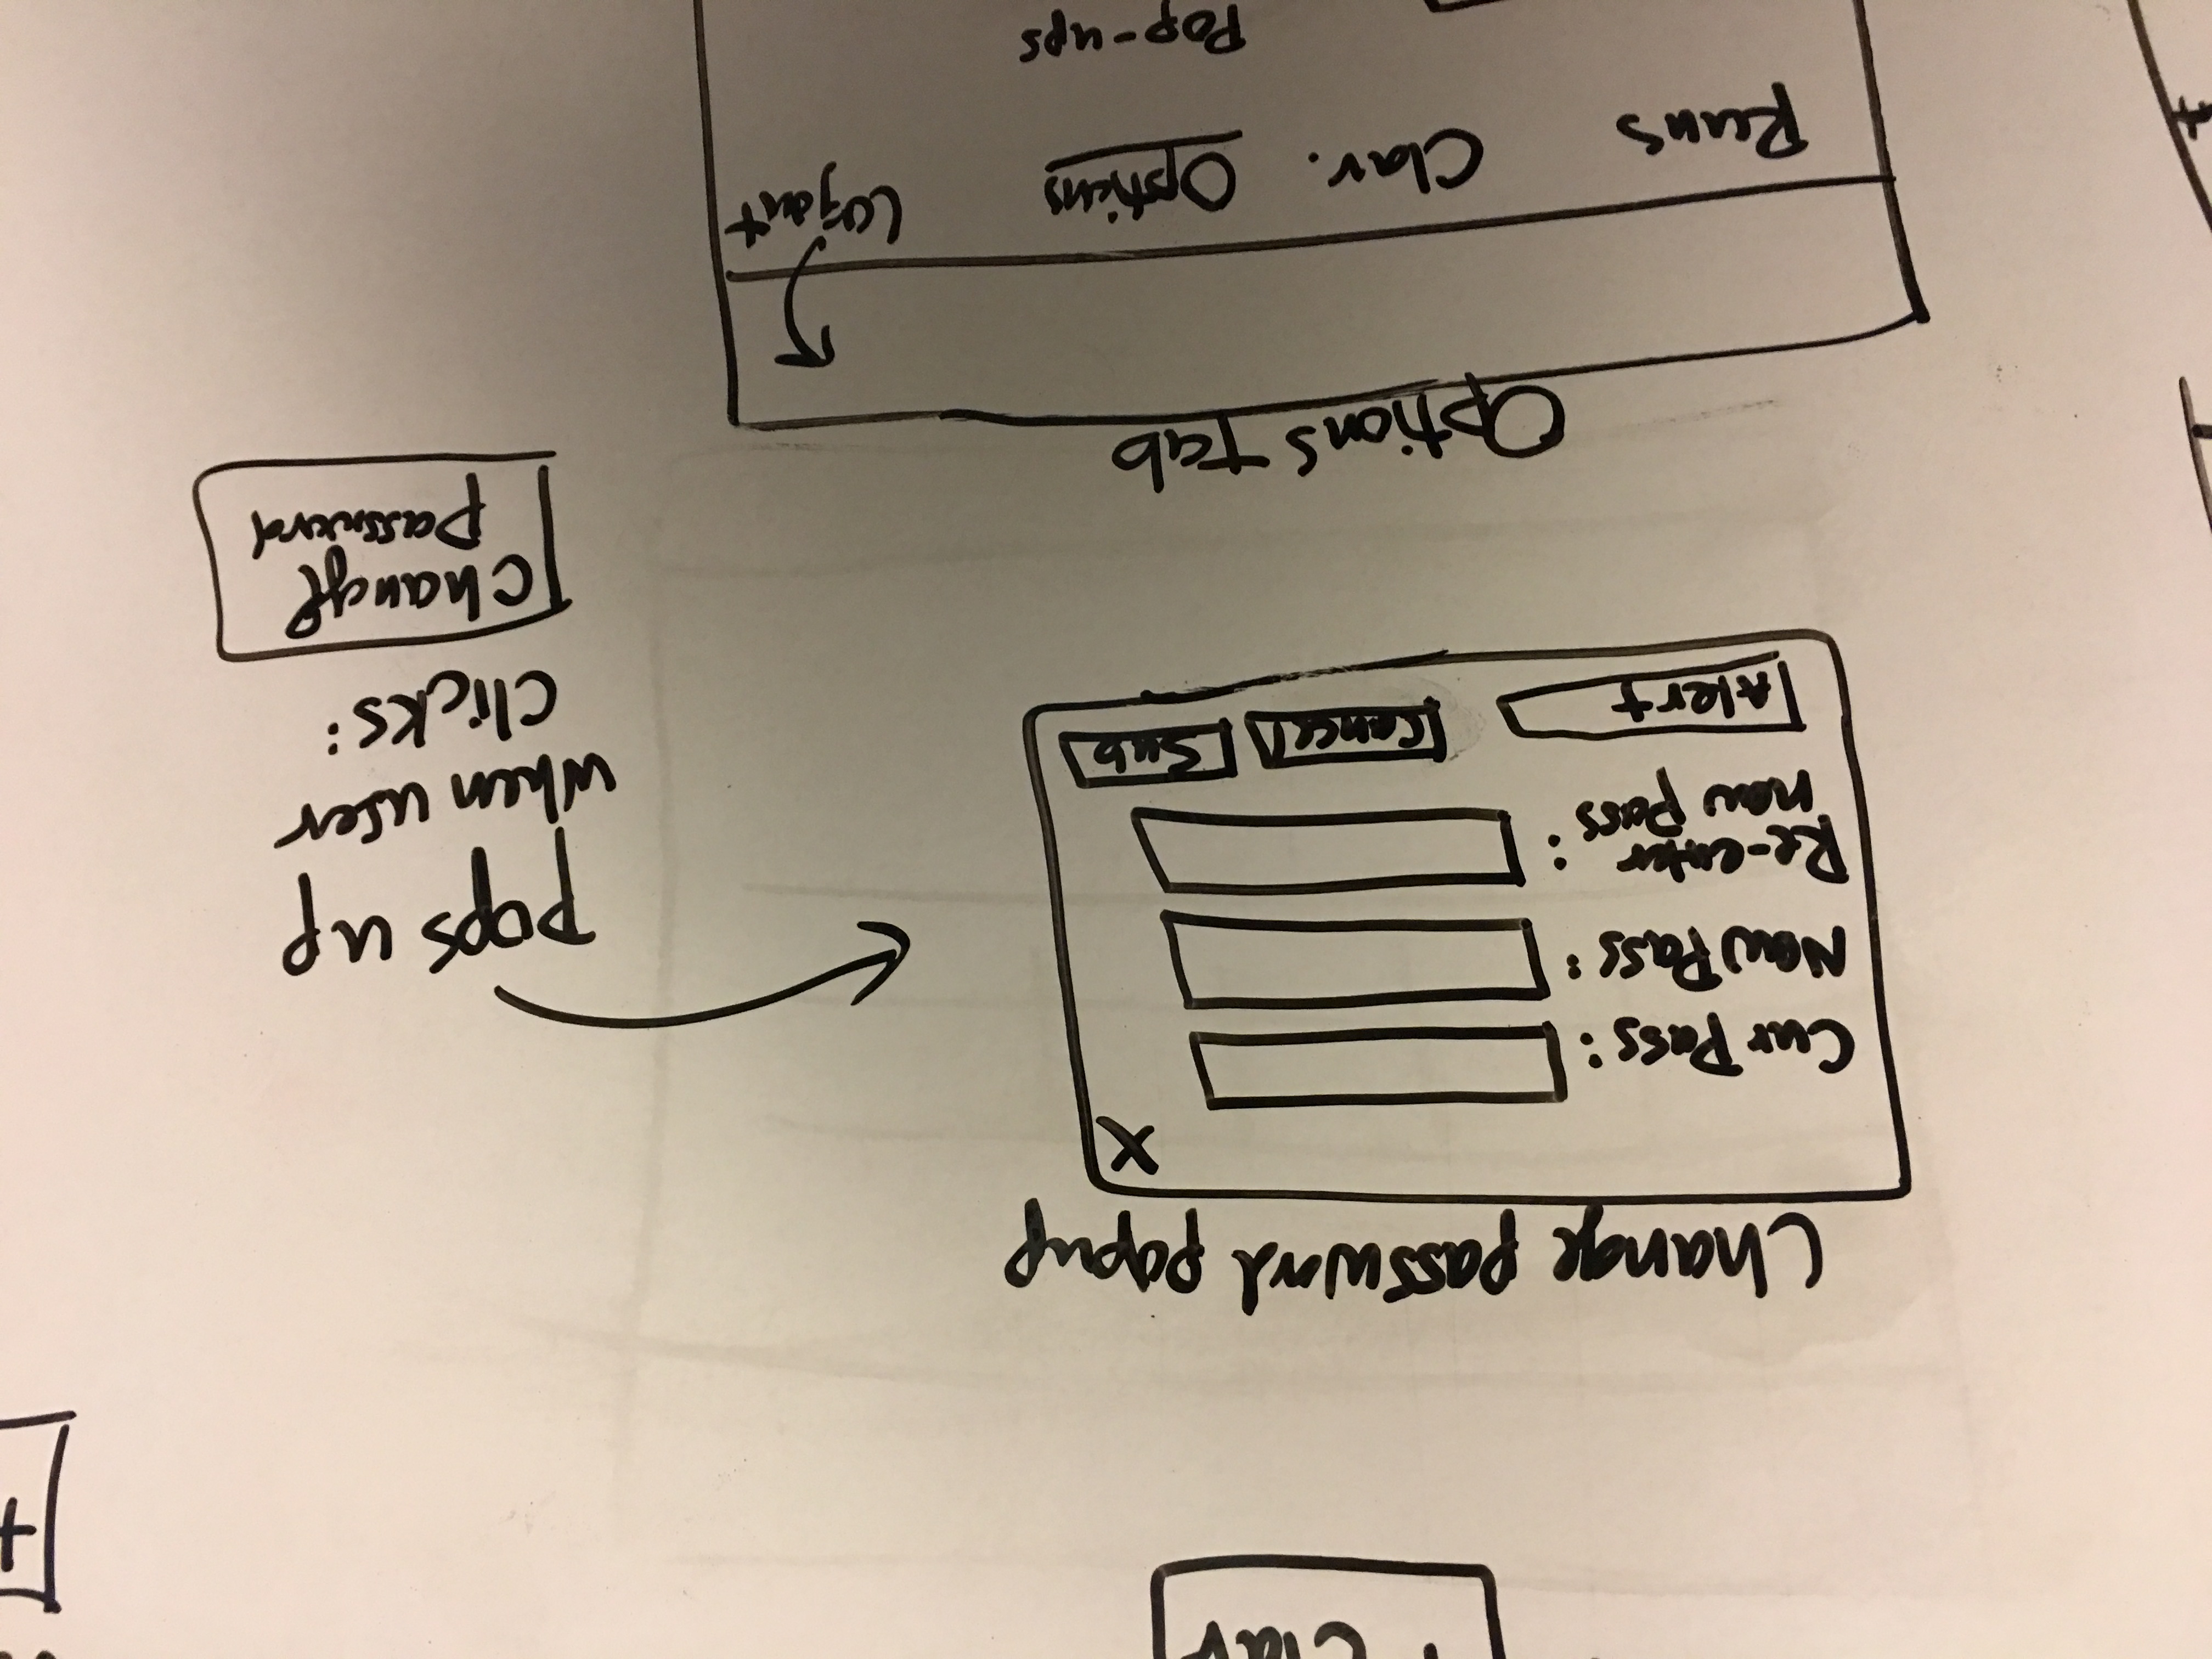 Clar
+
Change password popup
X
Cur Pass:
New Pass:
Re-enter
new pass:
Alert
Cancel
Sub
pops up
when user
clicks:
Change
password
Options tab
Logout
Runs
Clar.
Options
Pop-ups